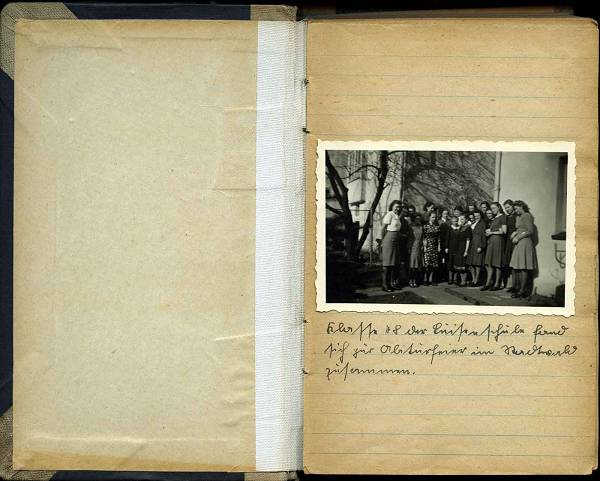 Klasse 8 der Luisenschule fand
sich zur Abiturfeier im Stadtwald
zusammen.